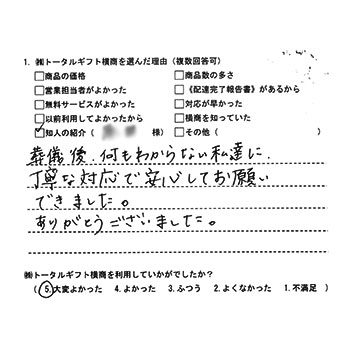 1. ㈱トータルギフト横商を選んだ理由（複数回答可）
□商品の価格 □商品数の多さ
□営業担当者がよかった □《配達完了報告書》があるから
□無料サービスがよかった □対応が早かった
□以前利用してよかったから □横商を知っていた
☑知人の紹介（ 様） □その他（ ）
葬儀後、何もわからない私達に
丁寧な対応で安心してお願い
できました。
ありがとうございました。
㈱トータルギフト横商を利用していかがでしたか？
（ 5.大変よかった 4.よかった 3.ふつう 2.よくなかった 1.不満足 ）